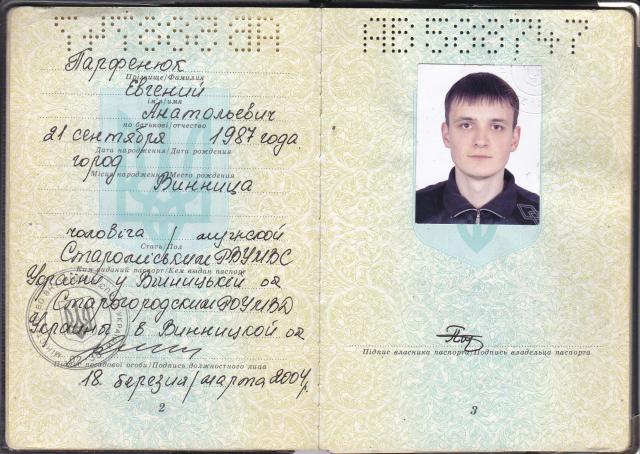 Парфенюк
Прізвище/Фамилия
Евгений
Ім'я/имя
Анатольевич
по батькові/отчество
21 сентября 1987 года
Дата народження/Дата рождения
город
Місце народження/Место рождения
Винница
чоловіча / мужской
Стать/Пол
Староміським РВУМВС
Ким виданий паспорт/Кем выдан паспорт
України у Вінницькій об
Старогородским РОУМВД
Украины в Винницкой об
Підпис посадової особи/Подпись должностного лица
18 березня/марта 2004 р.
2
АВ 588747
Підпис власника паспорта/Подпись владельца паспорта
3